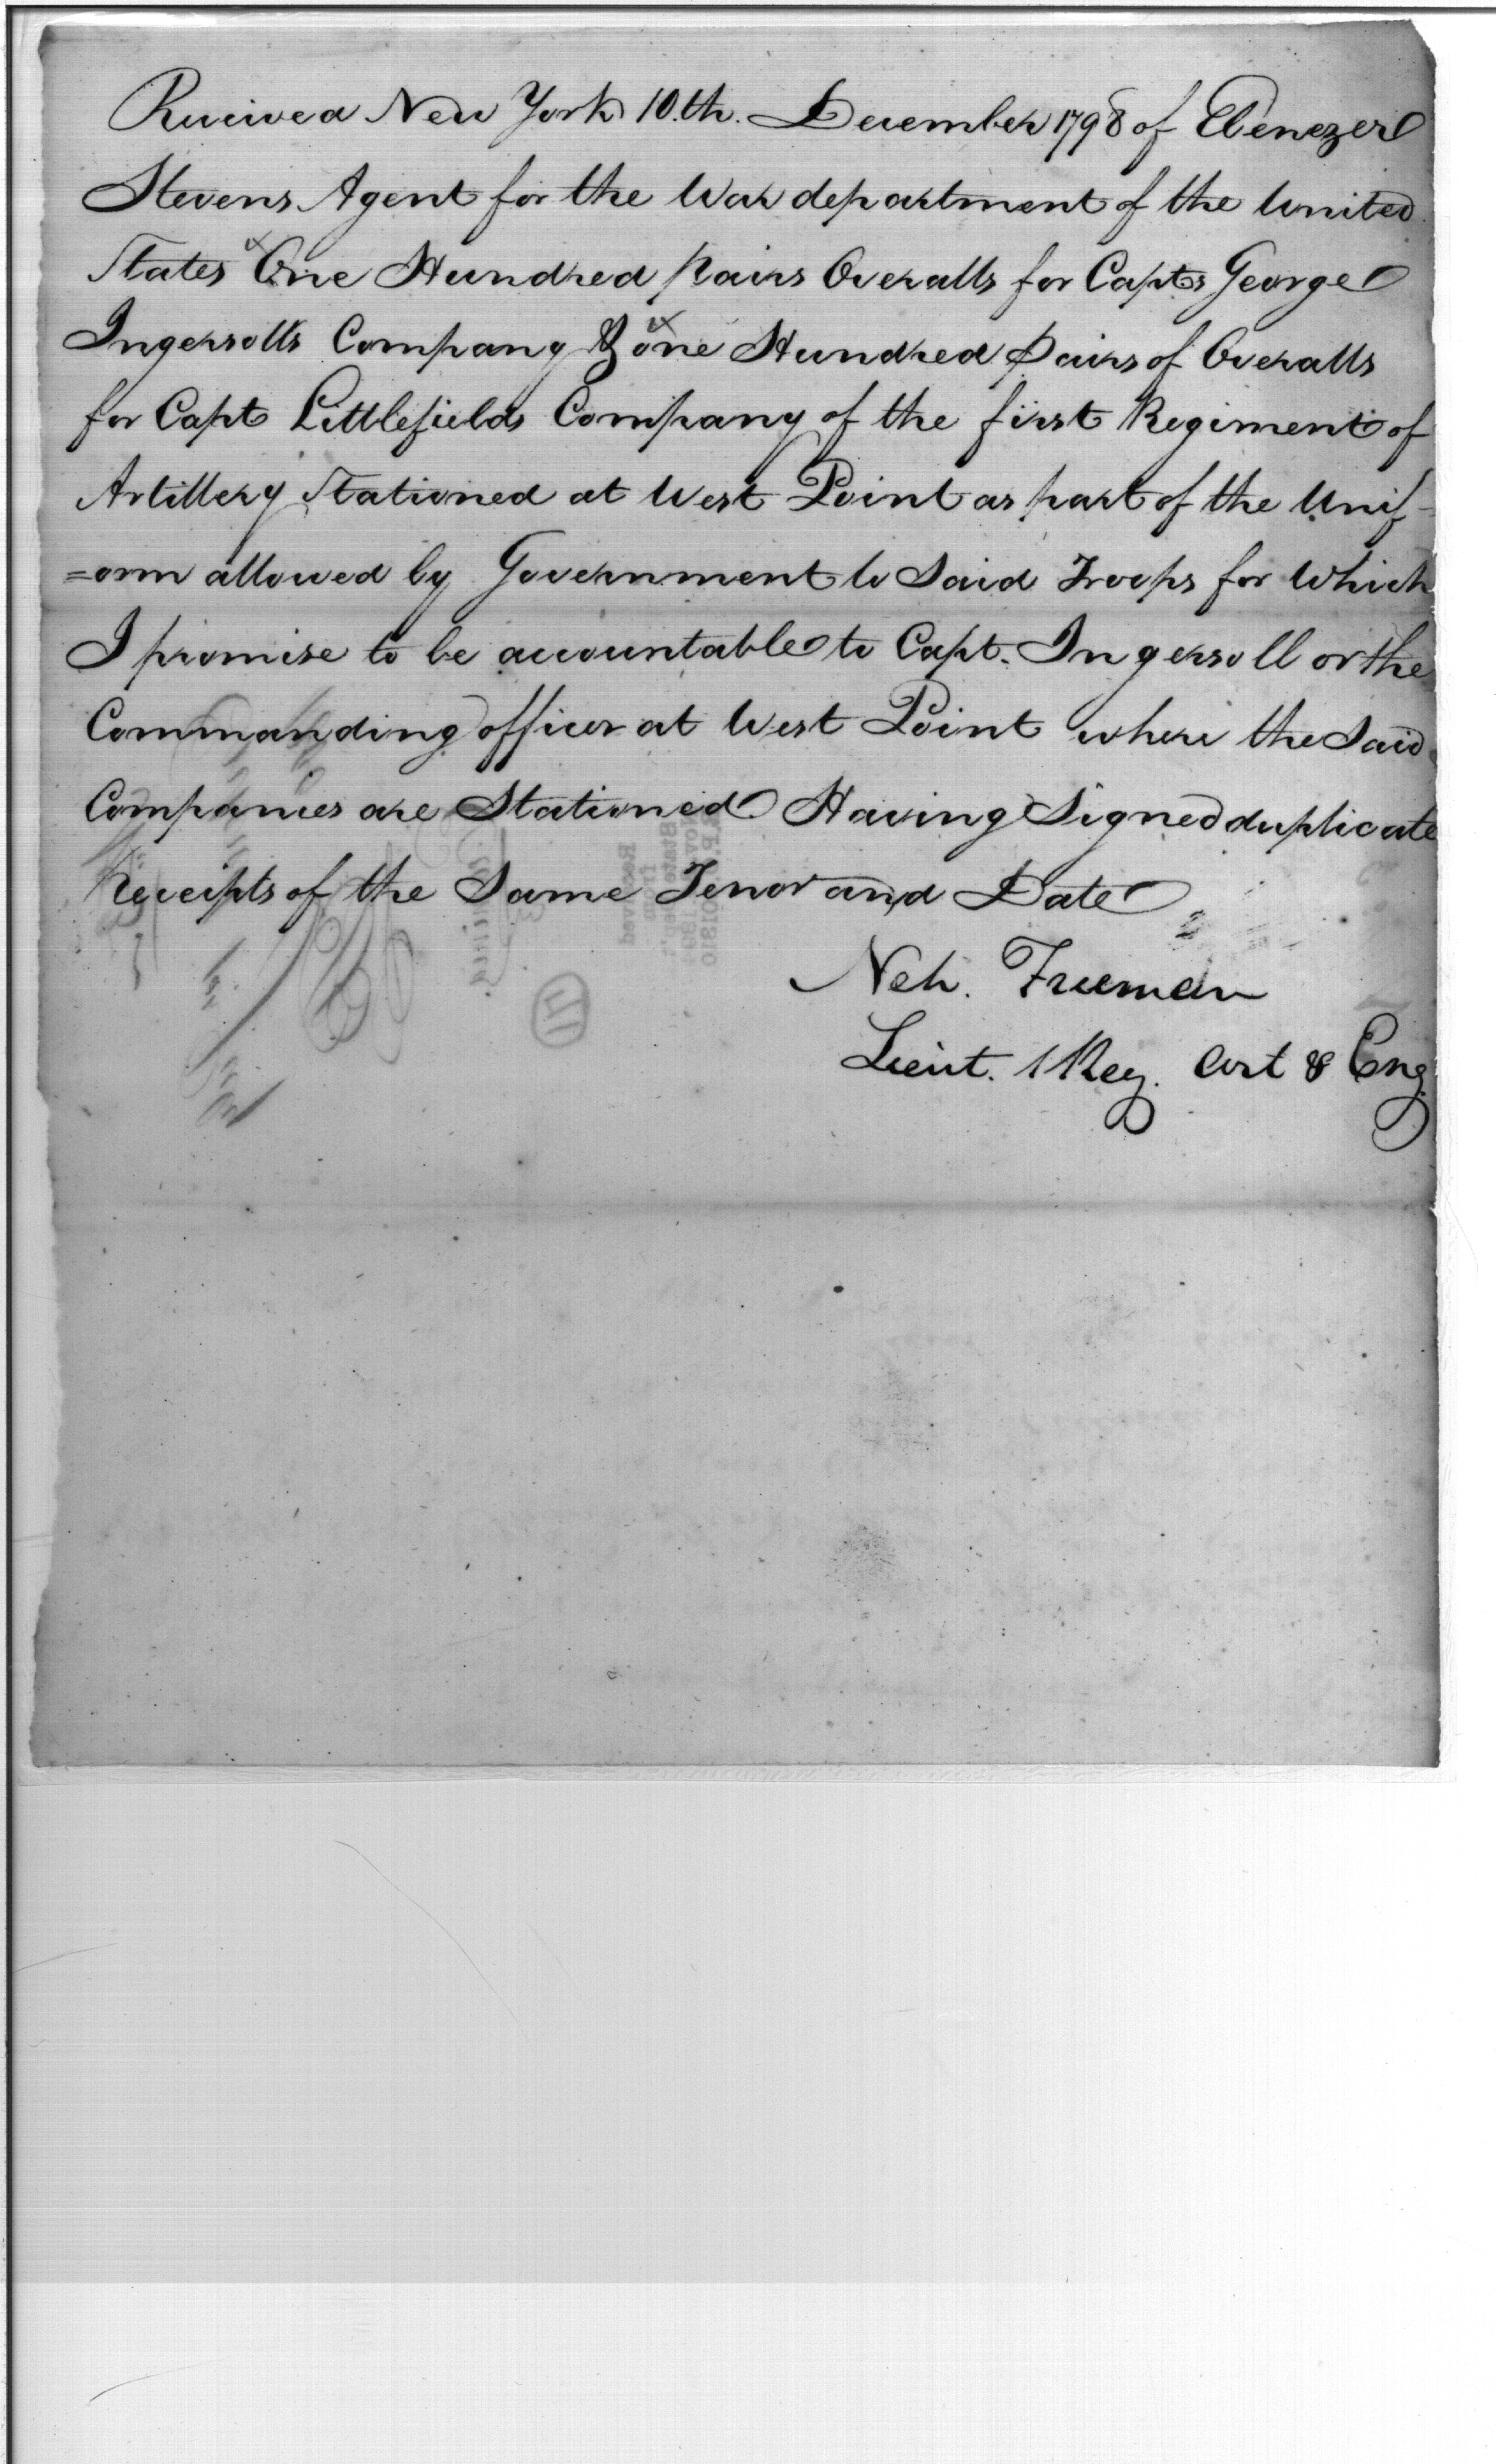 Received New York 10.th. December 1798 of Ebenezer
Stevens Agent for the War department of the United
States One Hundred pairs Overalls for Capts George
Ingersolls Company & one Hundred Pairs of Overalls
for Capt Littlefields Company of the first Regiment of
Artillery Stationed at West Point as part of the Unif-
=orm allowed by Government to Said Troops for Which
I promise to be accountable to Capt. Ingersoll or the
Commanding officer at West Point where the Said
Companies are Stationed Having Signed duplicate
Receipts of the Same Tenor and Date
Neh. Freeman
Lieut. 1 Reg. Art & Eng.